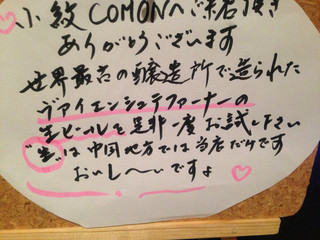 小紋COMONへご来店頂き
ありがとうございます
世界最古の醸造所で造られた
ヴァイエンシュテファーナーの
生ビールを是非一度お試し下さい
"生"は中国地方では当店だけです
おいし〜いですよ